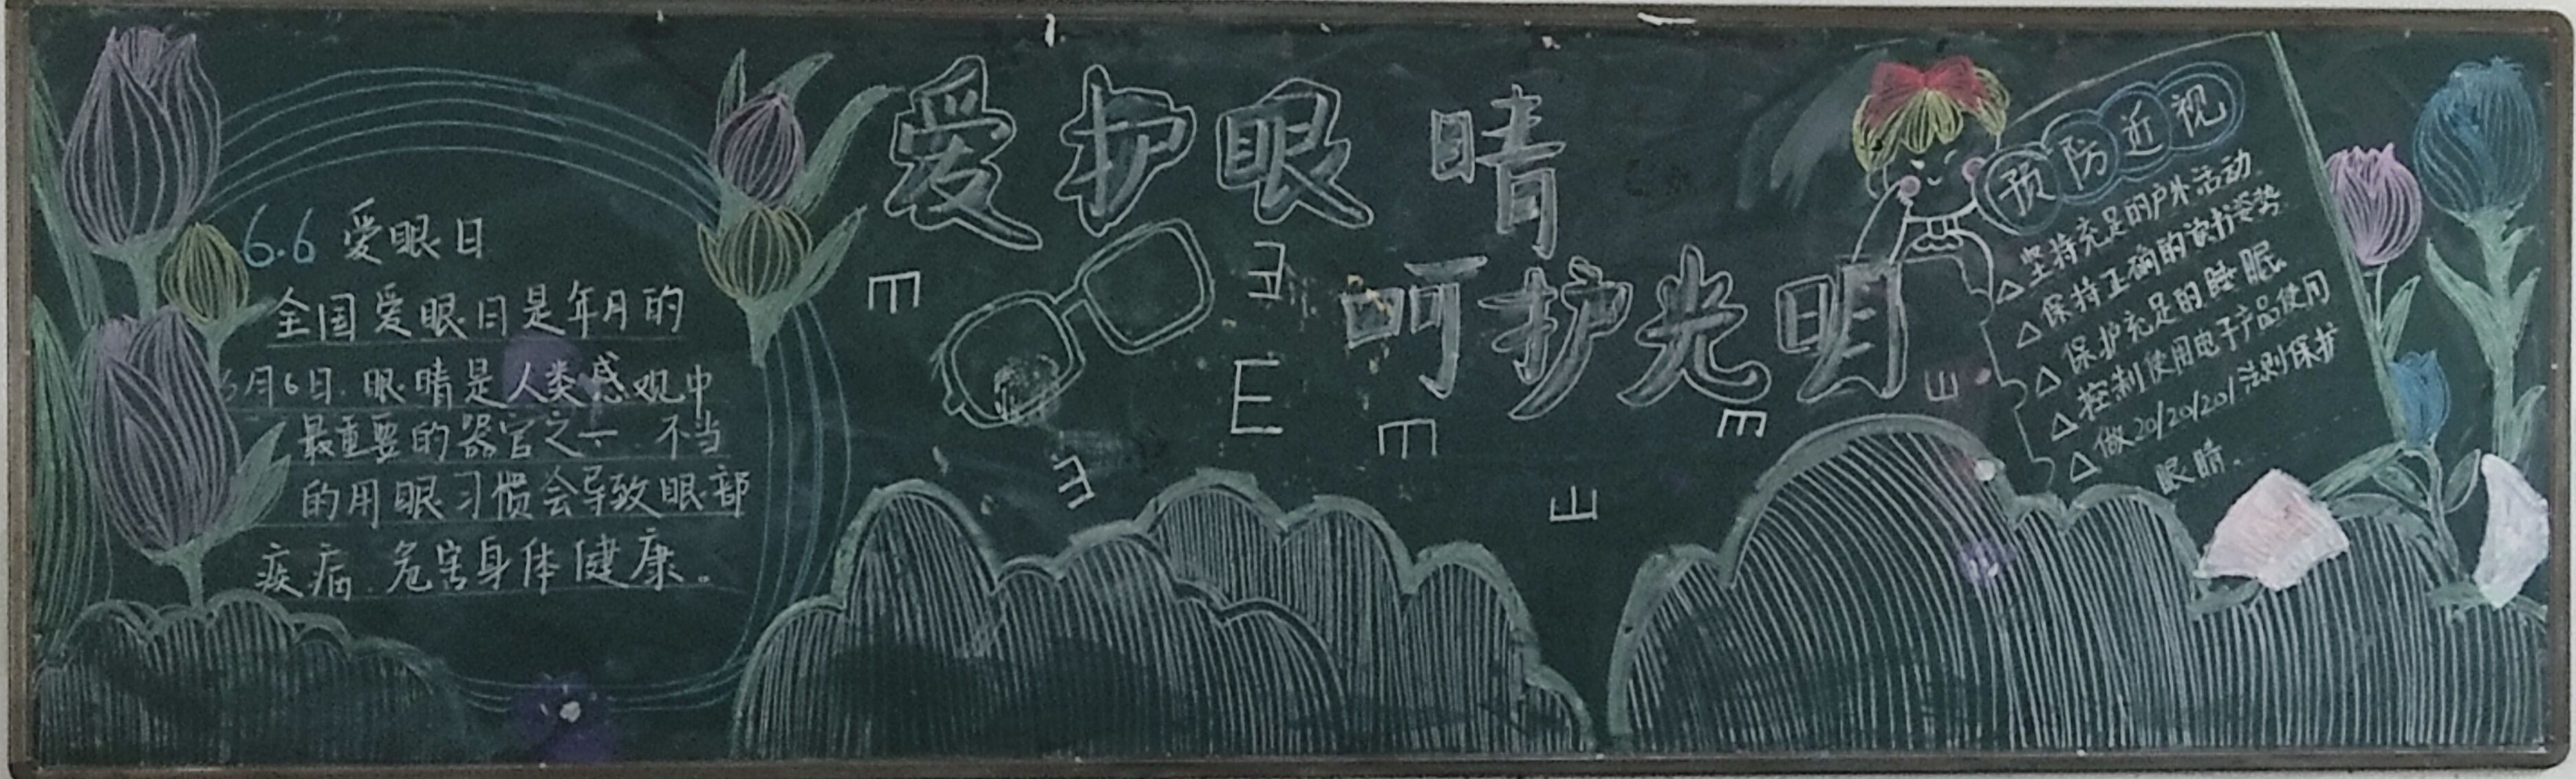 6.6 爱眼日
全国爱眼日是年月的
6月6日.眼睛是人类感观中
最重要的器官之一 不当
的用眼习惯会导致眼部
疾病.危害身体健康。
爱护眼睛
呵护光明
E
E
E
E
E
E
E
E
预防近视
△坚持充足的户外活动.
△保持正确的读书姿势
△保护充足的睡眠
△控制使用电子产品使用
△做20/20/20/法则保护
眼睛.